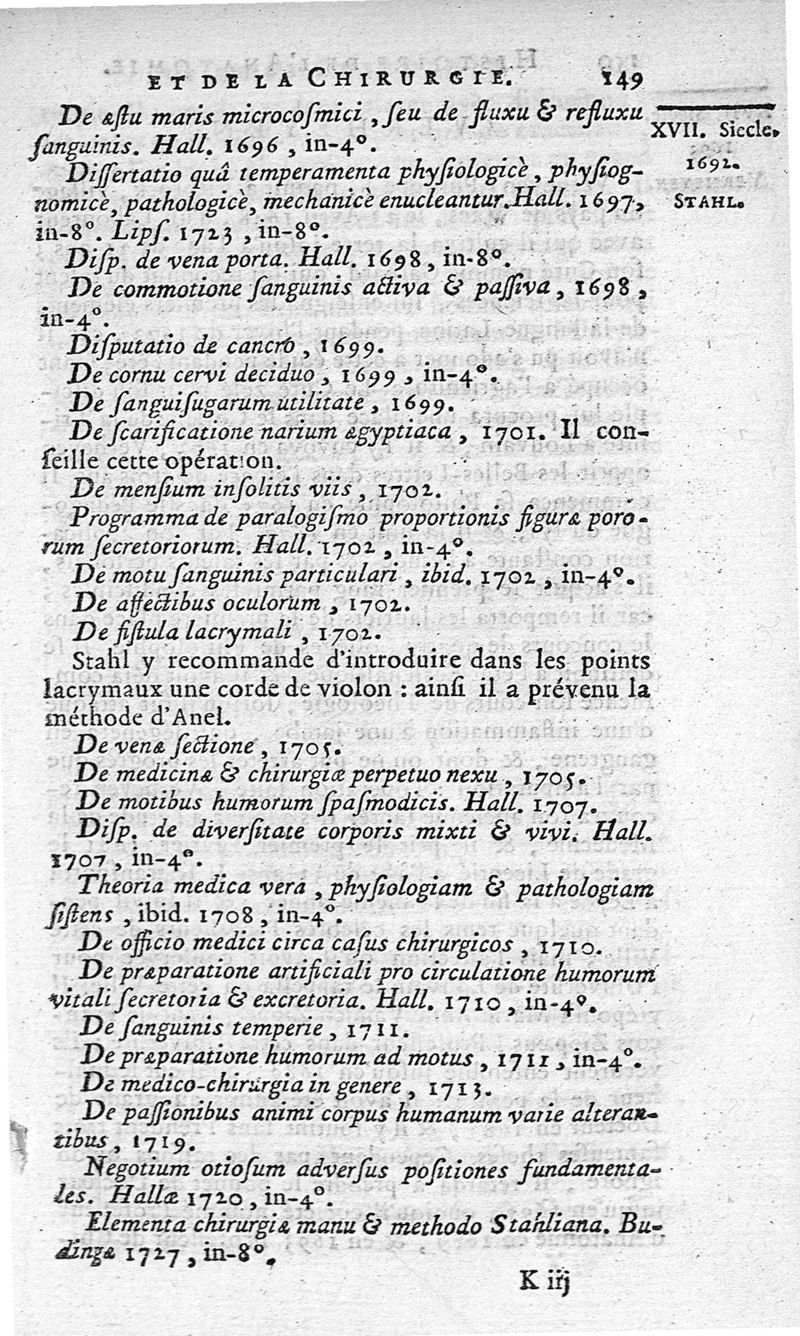 ET DE LA CHIRURGIE. 149
De æstu maris microcoſmici, ſeu de fluxu & refluxu
ſanguinis. Hall. 1696, in-4°.
XVII. Siecle.
1692.
STAHL.
Diſſertatio quâ temperamenta phyſiologicè, phyſiog-
nomicè, pathologicè, mechanicè enucleantur. Hall. 1697,
in-8°. Lipſ. 1723, in-8°.
Diſp. de vena porta. Hall. 1698, in-8°.
De commotione ſanguinis activa & paſſiva, 1698,
in-4°.
Diſputatio de cancro, 1699.
De cornu cervi deciduo, 1699, in-4°.
De ſanguiſugarum utilitate, 1699.
De ſcarificatione narium ægyptiaca, 1701. Il con-
ſeille cette opération.
De menſium inſolitis viis, 1702.
Programma de paralogiſmo proportionis figuræ poro-
rum ſecretoriorum. Hall. 1702, in-4°.
De motu ſanguinis particulari, ibid. 1702, in-4°.
De affectibus oculorum, 1702.
De fiſtula lacrymali, 1702.
Stahl y recommande d'introduire dans les points
lacrymaux une corde de violon : ainſi il a prévenu la
méthode d'Anel.
De venæ ſectione, 1705.
De medicinæ & chirurgiæ perpetuo nexu, 1705.
De motibus humorum ſpaſmodicis. Hall. 1707.
Diſp. de diverſitate corporis mixti & vivi. Hall.
1707, in-4°.
Theoria medica vera, phyſiologiam & pathologiam
ſiſtens, ibid. 1708, in-4°.
De officio medici circa caſus chirurgicos, 1710.
De præparatione artificiali pro circulatione humorum
vitali ſecretoria & excretoria. Hall. 1710, in-4°.
De ſanguinis temperie, 1711.
De præparatione humorum ad motus, 1711, in-4°.
De medico-chirurgia in genere, 1713.
De paſſionibus animi corpus humanum varie alteran-
tibus, 1719.
Negotium otioſum adverſus poſitiones fundamenta-
les. Hallæ 1720, in-4°.
Elementa chirurgiæ manu & methodo Stahliana. Bu-
dingæ 1727, in-8°.
K iij